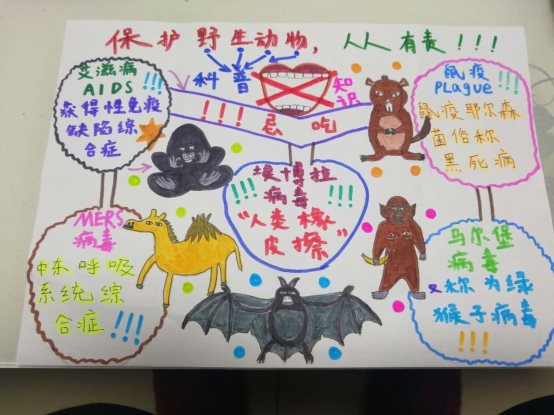 保护野生动物，人人有责！！！
科普
知识
！！！忌吃
艾滋病
AIDS ！！！
获得性免疫
缺陷综
合症
鼠疫
Plague ！！！
鼠疫耶尔森
菌俗称
黑死病
埃博拉
病毒
！！！ ！！！
“人类橡
皮擦”
MERS
病毒
中东呼吸
系统综
合症 ！！！
马尔堡
病毒
又称为绿
猴子病毒
！！！